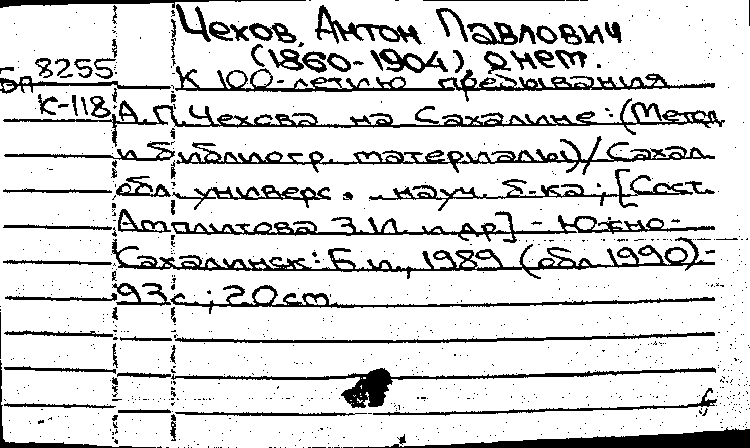 Чехов, Антон Павлович
(1860-1904), о нем.
Бп 8255 К 100-летию пребывания
К-118 А.П. Чехова на Сахалине: (Метод.
и библиогр. материалы) / Сахал.
обл. универс. науч. б-ка; [Сост.
З.И. и др] - Южно-
Сахалинск: Б.и., 1989 (обл 1990).-
93с.; 20см